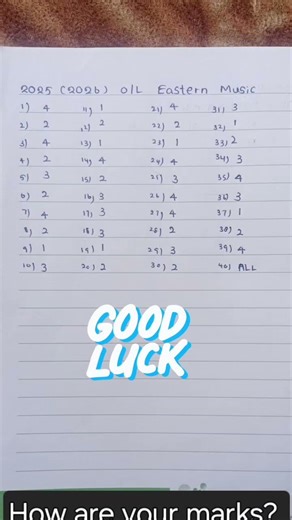 2025 (2026) O/L Eastern Music
1) 4 11) 1 21) 4 31) 3
2) 2 12) 2 22) 2 32) 1
3) 4 13) 1 23) 1 33) 2
4) 2 14) 4 24) 4 34) 3
5) 3 15) 2 25) 3 35) 4
6) 2 16) 3 26) 4 36) 3
7) 4 17) 3 27) 4 37) 1
8) 2 18) 3 28) 2 38) 2
9) 1 19) 1 29) 3 39) 4
10) 3 20) 2 30) 2 40) ALL
GOOD
LUCK
How are your marks?